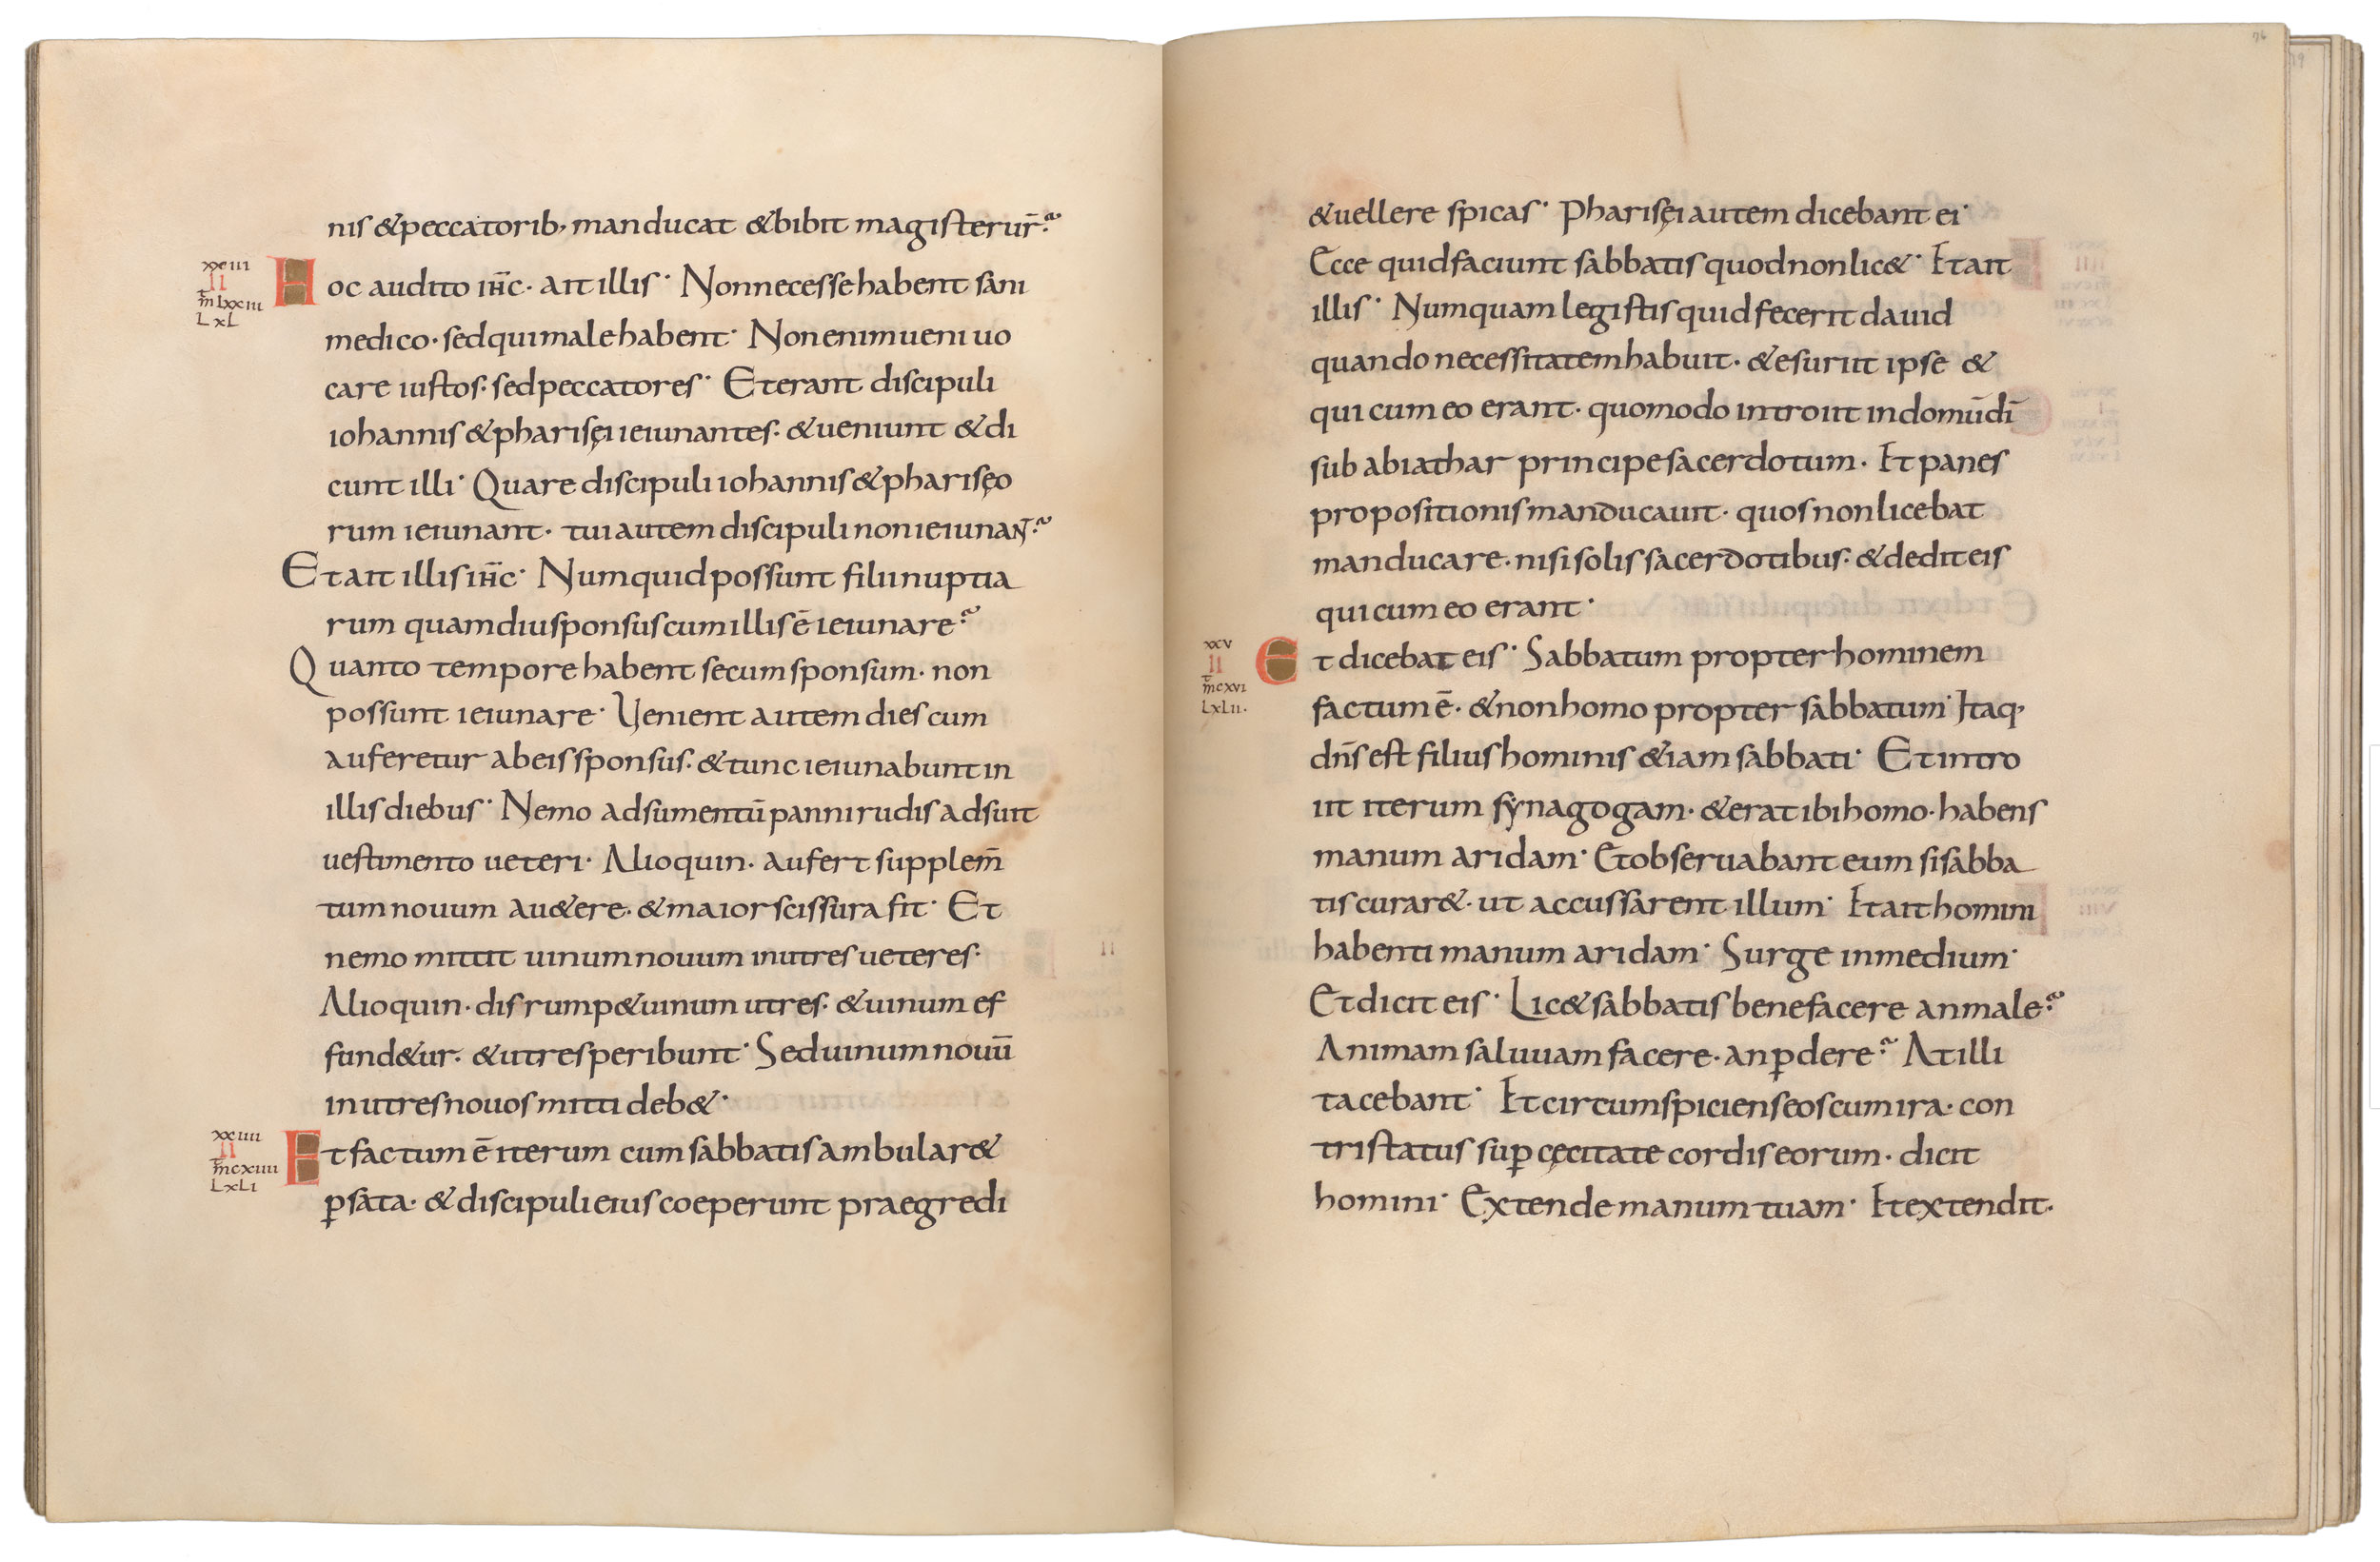 nis &peccatorib, manducat &bibit magister ur̄?
xxiii
II
m̄ lxxiii
LxL
Hoc audito ih̄c· ait illis· Non necesse habent sani
medico· sed qui male habent· Non enim ueni uo
care iustos· sed peccatores· Et erant discipuli
iohannis &pharisęi ieiunantes· &ueniunt &di
cunt illi· Quare discipuli iohannis &pharisęo
rum ieiunant· tui autem discipuli non ieiunant?
Et ait illis ih̄c· Numquid possunt filii nuptia
rum quamdiu sponsus cum illis ē ieiunare?
Quanto tempore habent secum sponsum· non
possunt ieiunare· Uenient autem dies cum
auferetur ab eis sponsus· &tunc ieiunabunt in
illis diebus· Nemo adsumentū panni rudis adsuit
uestimento ueteri· Alioquin· aufert supplem̄
tum nouum au&ere· &maior scissura fit· Et
nemo mittit uinum nouum in utres ueteres·
Alioquin· disrump& uinum utres· &uinum ef
fund&ur· &utres peribunt· Sed uinum nouū
in utres nouos mitti deb&·
xxiiii
II
m̄cxiiii
LxLI
Et factum ē iterum cum sabbatis ambular&
p̱ sata· &discipuli eius coeperunt praegredi
76
&uellere spicas· Pharisęi autem dicebant ei·
Ecce quid faciunt sabbatis quod non lic&· Et ait
illis· Numquam legistis quid fecerit dauid
quando necessitatem habuit· &esuriit ipse &
qui cum eo erant· quomodo introiit in domū dī
sub abiathar principe sacerdotum· Et panes
propositionis manducauit· quos non licebat
manducare· nisi solis sacerdotibus· &dedit eis
qui cum eo erant·
xxv
II
m̄cxvi
LxLii·
Et dicebat eis· Sabbatum propter hominem
factum ē· &non homo propter sabbatum· Itaq,
dn̄s est filius hominis &iam sabbati· Et intro
iit iterum synagogam· &erat ibi homo· habens
manum aridam· Et obseruabant eum si sabba
tis curar&· ut accussarent illum· Et ait homini
habenti manum aridam· Surge in medium·
Et dicit eis· Lic& sabbatis bene facere an male?
Animam saluuam facere· an p̱dere? At illi
tacebant· Et circumspiciens eos cum ira· con
tristatus sup̱ cęcitate cordis eorum· dicit
homini· Extende manum tuam· Et extendit·